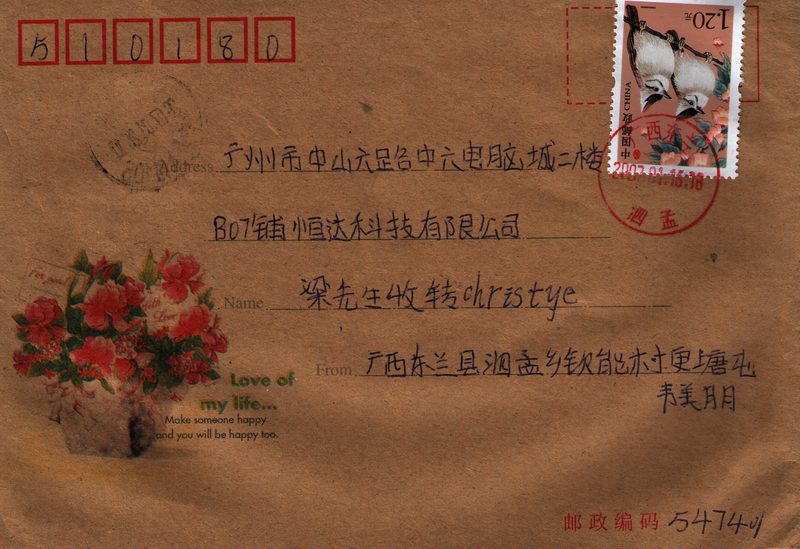 510180
1.20元
中国邮政 CHINA
西东
2007.01.15.18
泗孟
Address 广州市中山六路中六电脑城二楼
B07铺恒达科技有限公司
Name 梁先生收转christye
From 广西东兰县泗孟乡钦能村更塘屯
韦美月月
With
Love
Love of
my life...
Make someone happy
and you will be happy too.
邮政编码 547401